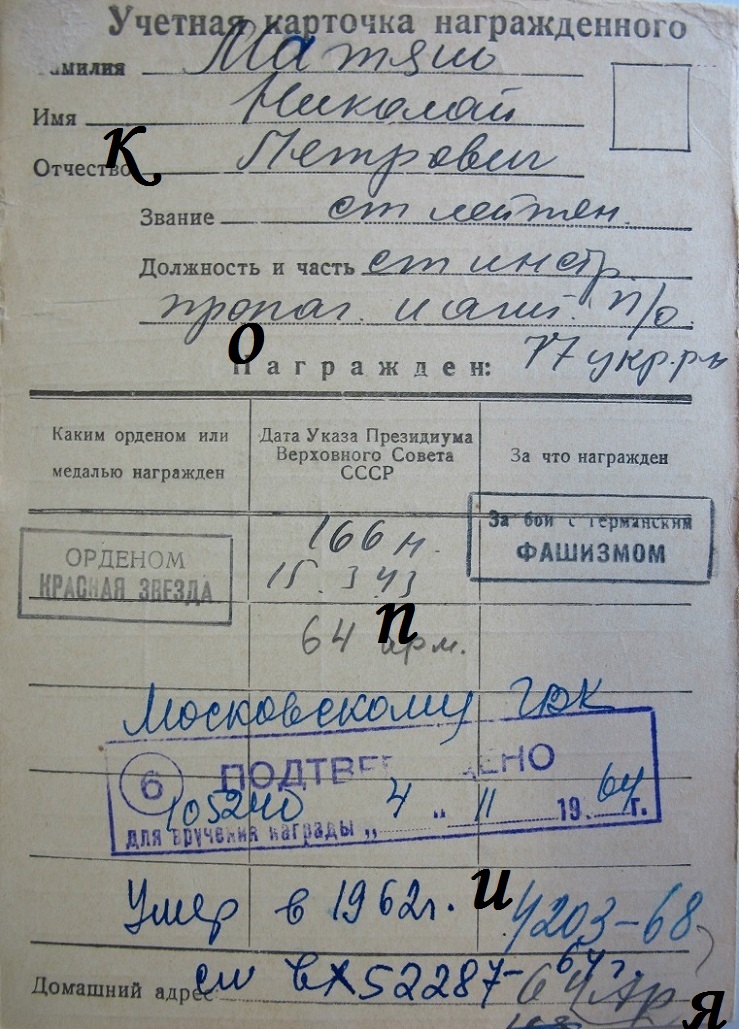 Учетная карточка награжденного
Фамилия Матяш
Имя Николай
Отчество Петрович
Звание ст лейтен.
Должность и часть ст инстр.
пропаг. и агит. п/о
Награжден: 77 укр.рн
Каким орденом или медалью награжден
Дата Указа Президиума Верховного Совета СССР
За что награжден
ОРДЕНОМ
КРАСНАЯ ЗВЕЗДА
166 н.
15.3 43
64 арм.
За бои с германским
ФАШИЗМОМ
Московскому гвк
6 ПОДТВЕРЖДЕНО
105240 "4" 11 1964 г.
для вручения награды
Умер в 1962г. 4203-68
Домашний адрес см вх52287-64г.
копия